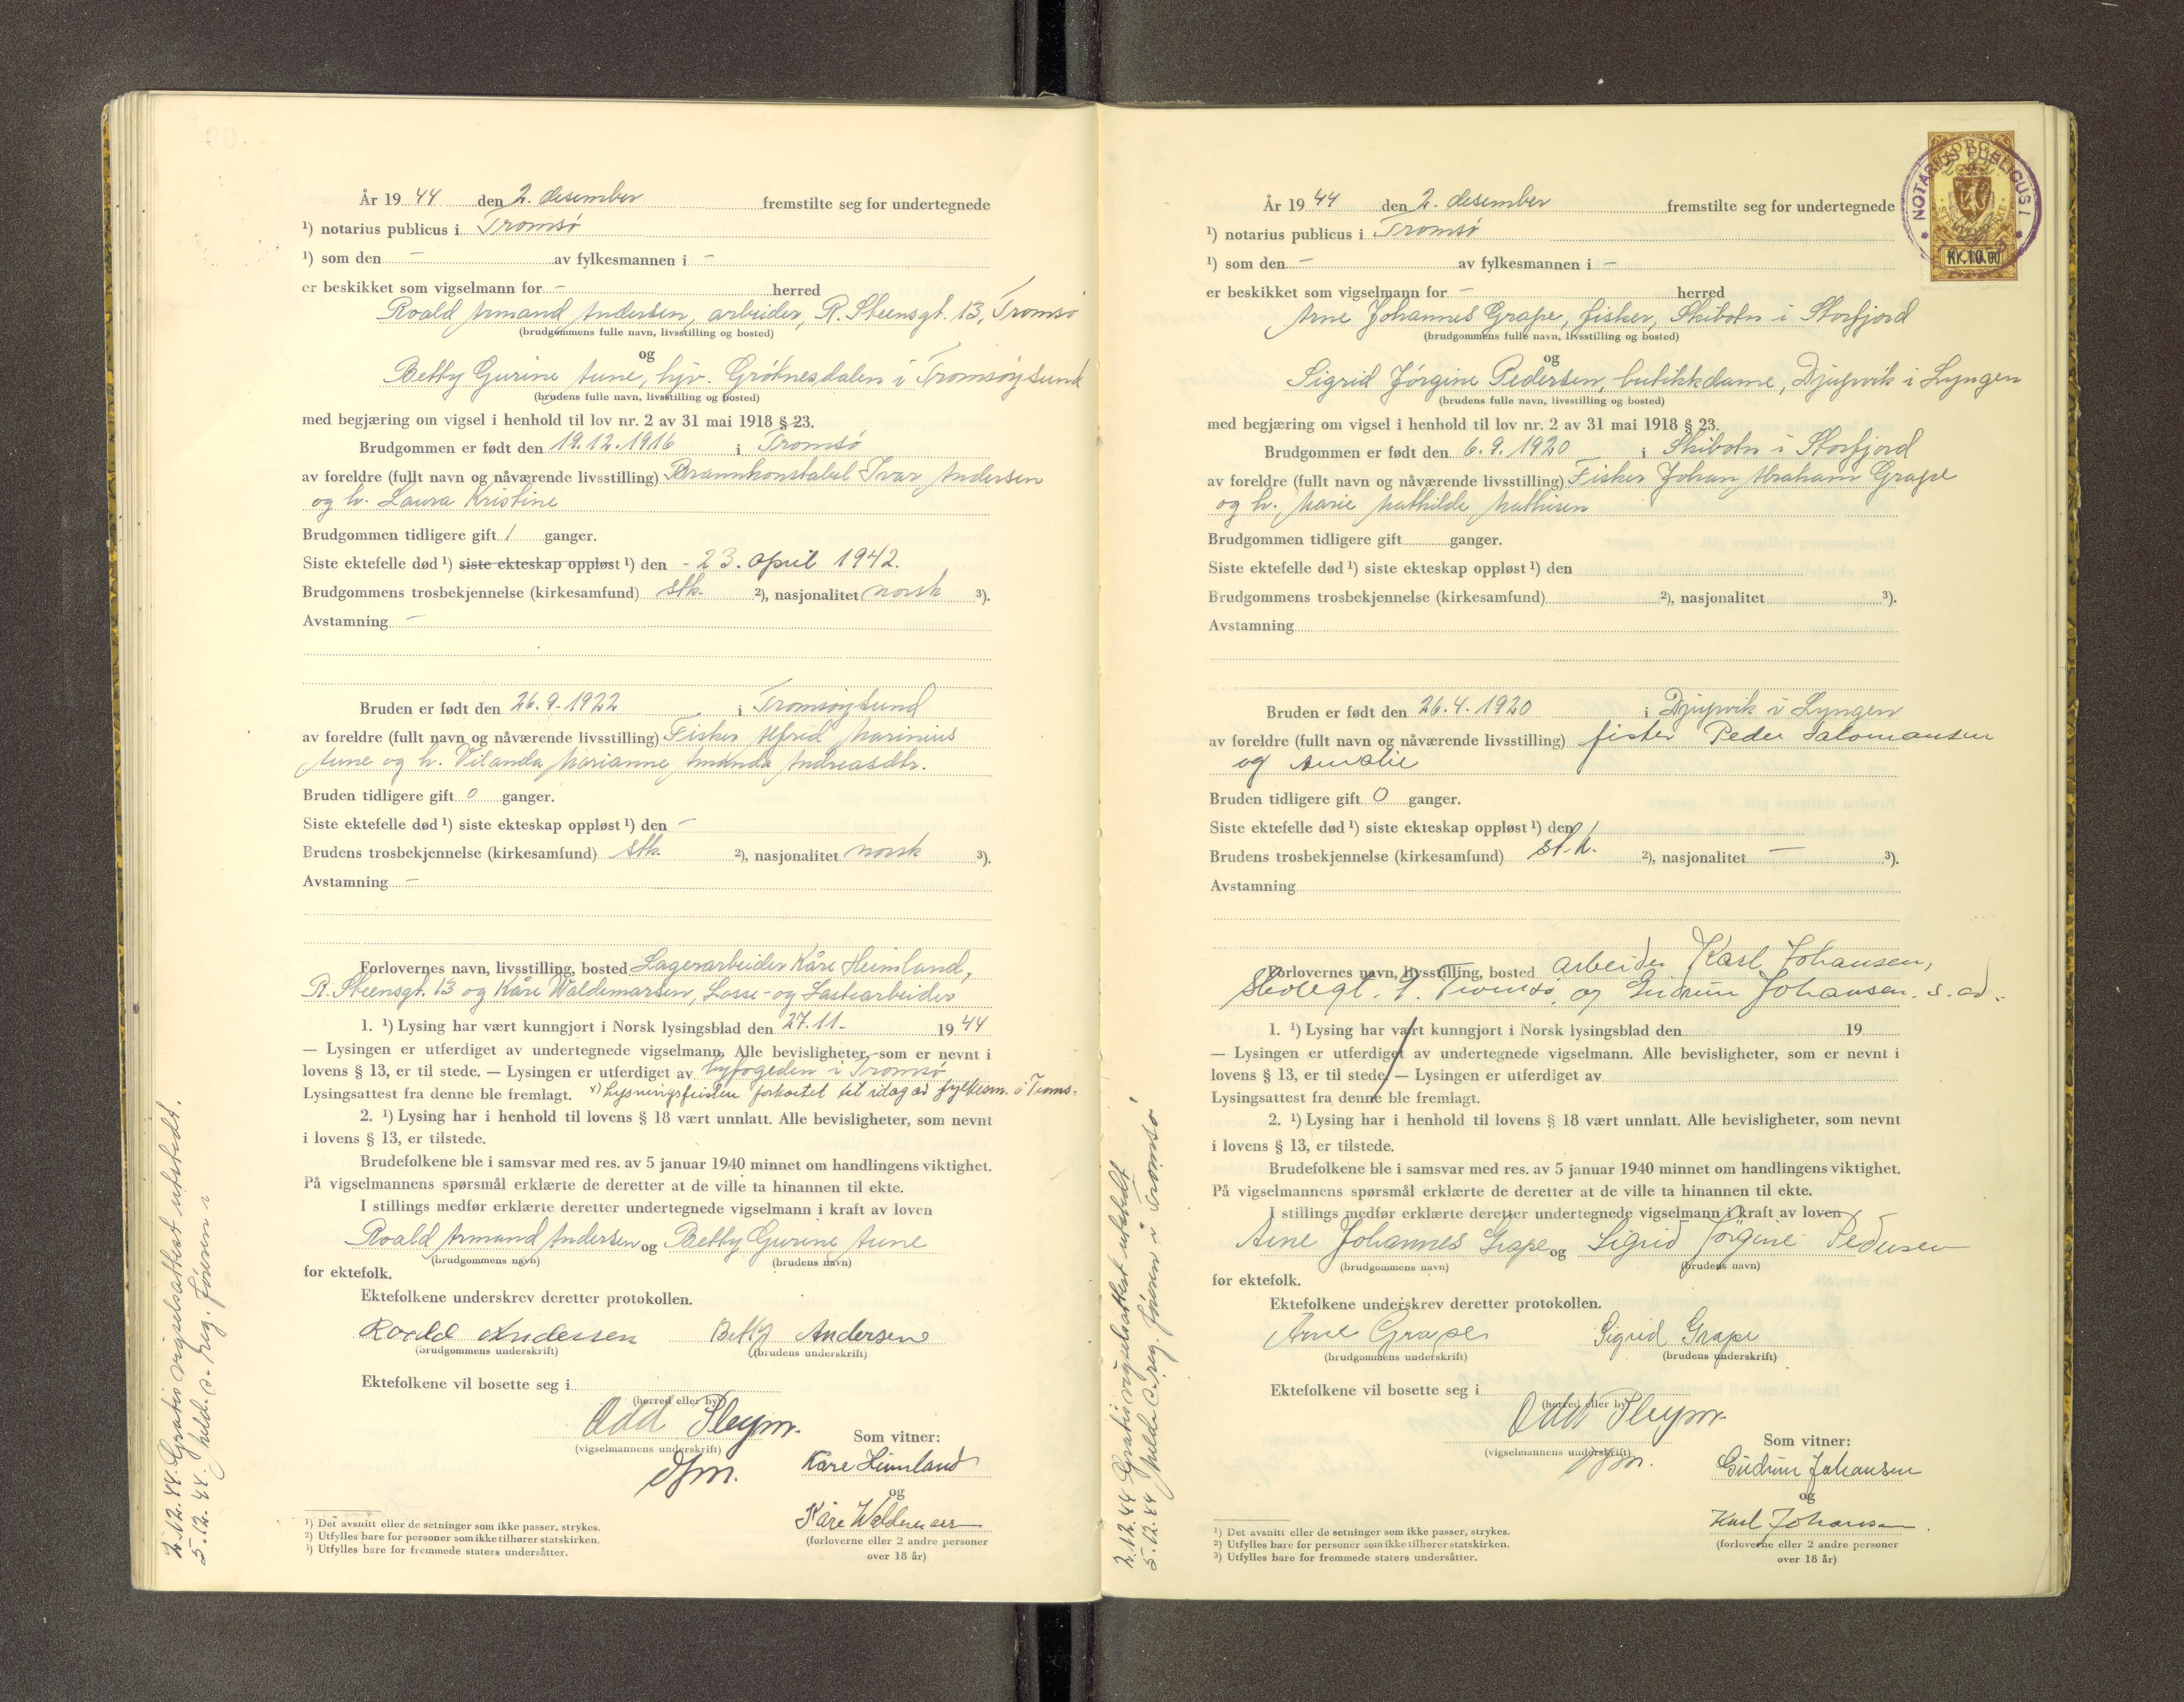 År 19 44 den 2. desember fremstilte seg for undertegnede
¹) notarius publicus i Tromsø
¹) som den - av fylkesmannen i -
er beskikket som vigselmann for - herred
Roald Armand Andersen, arbeider, R. Steensgt. 13, Tromsø
(brudgommens fulle navn, livsstilling og bosted)
og
Betty Gurine Aune, hjv. Grøtnesdalen i Tromsøysund
(brudens fulle navn, livsstilling og bosted)
med begjæring om vigsel i henhold til lov nr. 2 av 31 mai 1918 § 23.
Brudgommen er født den 19.12.1916 i Tromsø
av foreldre (fullt navn og nåværende livsstilling) Brannkonstabel Ivar Andersen
og h. Laura Kristine
Brudgommen tidligere gift 1 ganger.
Siste ektefelle død ¹) siste ekteskap oppløst ¹) den - 23. april 1942.
Brudgommens trosbekjennelse (kirkesamfund) stk. ²), nasjonalitet norsk ³).
Avstamning -
Bruden er født den 26.9.1922 i Tromsøysund
av foreldre (fullt navn og nåværende livsstilling) Fisker Alfred Marinius
Aune og h. Vilanda Marianne Amanda Andreasdtr.
Bruden tidligere gift 0 ganger.
Siste ektefelle død ¹) siste ekteskap oppløst ¹) den -
Brudens trosbekjennelse (kirkesamfund) stk. ²), nasjonalitet norsk ³).
Avstamning -
Forlovernes navn, livsstilling, bosted Lagerarbeider Kåre Heimland,
R. Steensgt. 13 og Kåre Waldemarsen, Losse- og Lastearbeider
1. ¹) Lysing har vært kunngjort i Norsk lysingsblad den 27.11. 19 44
— Lysingen er utferdiget av undertegnede vigselmann. Alle bevisligheter, som er nevnt i
lovens § 13, er til stede. — Lysingen er utferdiget av byfogeden i Tromsø
Lysingsattest fra denne ble fremlagt. x) Lysningsfristen forkortet til idag av fylkesm. i Troms.
2. ¹) Lysing har i henhold til lovens § 18 vært unnlatt. Alle bevisligheter, som nevnt
i lovens § 13, er tilstede.
Brudefolkene ble i samsvar med res. av 5 januar 1940 minnet om handlingens viktighet.
På vigselmannens spørsmål erklærte de deretter at de ville ta hinannen til ekte.
I stillings medfør erklærte deretter undertegnede vigselmann i kraft av loven
Roald Armand Andersen og Betty Gurine Aune
(brudgommens navn) (brudens navn)
for ektefolk.
Ektefolkene underskrev deretter protokollen.
Roald Andersen Betty Andersen
(brudgommens underskrift) (brudens underskrift)
Ektefolkene vil bosette seg i
(herred eller by)
Odd Pleym.
(vigselmannens underskrift)
dfm.
Som vitner:
Kåre Heimland
og
Kåre Waldemars
(forloverne eller 2 andre personer
over 18 år)
¹) Det avsnitt eller de setninger som ikke passer, strykes.
²) Utfylles bare for personer som ikke tilhører statskirken.
³) Utfylles bare for fremmede staters undersåtter.
2.12.44. Gratis vigselsattest utstedt.
5.12.44. meld. s. reg. føreren i
År 19 44 den 2. desember fremstilte seg for undertegnede
¹) notarius publicus i Tromsø
¹) som den - av fylkesmannen i -
er beskikket som vigselmann for - herred
Arne Johannes Grape, fisker, Skibotn i Storfjord
(brudgommens fulle navn, livsstilling og bosted)
og
Sigrid Jørgine Pedersen, butikkdame, Djupvik i Lyngen
(brudens fulle navn, livsstilling og bosted)
med begjæring om vigsel i henhold til lov nr. 2 av 31 mai 1918 § 23.
Brudgommen er født den 6.9.1920 i Skibotn i Storfjord
av foreldre (fullt navn og nåværende livsstilling) Fisker Johan Abraham Grape
og h. Marie Mathilde Mathisen
Brudgommen tidligere gift ganger.
Siste ektefelle død ¹) siste ekteskap oppløst ¹) den
Brudgommens trosbekjennelse (kirkesamfund) ²), nasjonalitet ³).
Avstamning
Bruden er født den 26.4.1920 i Djupvik i Lyngen
av foreldre (fullt navn og nåværende livsstilling) fisker Peder Salomonsen
og Amalie
Bruden tidligere gift 0 ganger.
Siste ektefelle død ¹) siste ekteskap oppløst ¹) den /
Brudens trosbekjennelse (kirkesamfund) st.k. ²), nasjonalitet — ³).
Avstamning
Forlovernes navn, livsstilling, bosted arbeider Karl Johansen,
9. Tromsø, og Gudrun Johansen. s. ad.
1. ¹) Lysing har vært kunngjort i Norsk lysingsblad den 19
— Lysingen er utferdiget av undertegnede vigselmann. Alle bevisligheter, som er nevnt i
lovens § 13, er til stede. — Lysingen er utferdiget av
Lysingsattest fra denne ble fremlagt.
2. ¹) Lysing har i henhold til lovens § 18 vært unnlatt. Alle bevisligheter, som nevnt
i lovens § 13, er tilstede.
Brudefolkene ble i samsvar med res. av 5 januar 1940 minnet om handlingens viktighet.
På vigselmannens spørsmål erklærte de deretter at de ville ta hinannen til ekte.
I stillings medfør erklærte deretter undertegnede vigselmann i kraft av loven
Arne Johannes Grape og Sigrid Jørgine Pedersen
(brudgommens navn) (brudens navn)
for ektefolk.
Ektefolkene underskrev deretter protokollen.
Arne Grape Sigrid Grape
(brudgommens underskrift) (brudens underskrift)
Ektefolkene vil bosette seg i
(herred eller by)
Odd Pleym.
(vigselmannens underskrift)
dfm.
Som vitner:
Gudrun Johansen
og
Karl Johansen.
(forloverne eller 2 andre personer
over 18 år)
¹) Det avsnitt eller de setninger som ikke passer, strykes.
²) Utfylles bare for personer som ikke tilhører statskirken.
³) Utfylles bare for fremmede staters undersåtter.
2.12.44 Gratis vigselsattest utstedt
5.12.44 meldt s. reg. føreren i Tromsø
NOTARIUS PUBLICUS I
Kr. 10.00